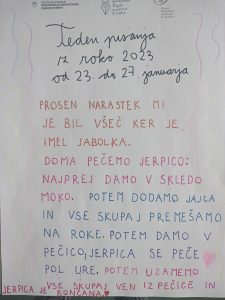 Teden pisanja
z roko 2023
od 23. do 27. januarja
PROSEN NARASTEK MI
JE BIL VŠEČ KER JE
IMEL JABOLKA.
DOMA PEČEMO JERPICO:
NAJPREJ DAMO V SKLEDO
MOKO. POTEM DODAMO JAJCA
IN VSE SKUPAJ PREMEŠAMO
NA ROKE. POTEM DAMO V
PEČICO, JERPICA SE PEČE
POL URE. POTEM UZAMEMO
VSE SKUPAJ VEN IZ PEČICE IN
JERPICA JE KONČANA.